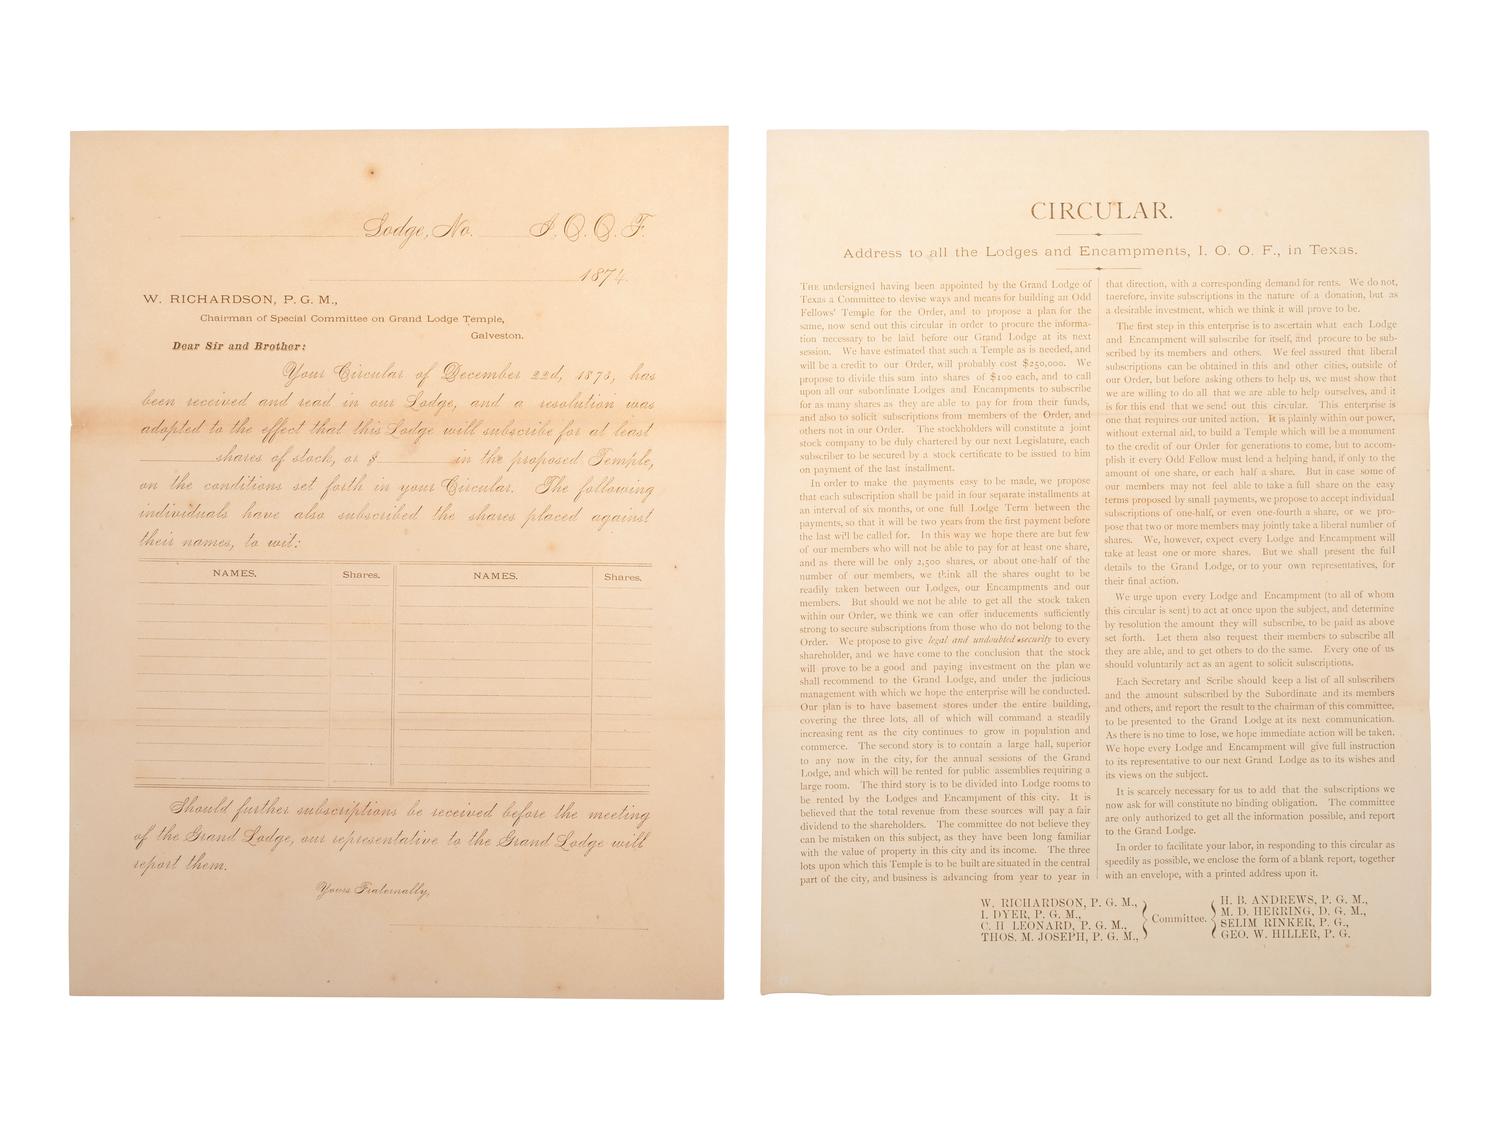 Lodge, No. I. O. O. F.
1874.
W. RICHARDSON, P. G. M.,
Chairman of Special Committee on Grand Lodge Temple,
Galveston.
Dear Sir and Brother:
Your Circular of December 22d, 1873, has
been received and read in our Lodge, and a resolution was
adopted to the effect that this Lodge will subscribe for at least
shares of stock, or $ in the proposed Temple,
on the conditions set forth in your Circular. The following
individuals have also subscribed the shares placed against
their names, to wit:
NAMES. Shares. NAMES. Shares.
Should further subscriptions be received before the meeting
of the Grand Lodge, our representative to the Grand Lodge will
report them.
Yours Fraternally,
CIRCULAR.
Address to all the Lodges and Encampments, I. O. O. F., in Texas.
THE undersigned having been appointed by the Grand Lodge of
Texas a Committee to devise ways and means for building an Odd
Fellows' Temple for the Order, and to propose a plan for the
same, now send out this circular in order to procure the informa-
tion necessary to be laid before our Grand Lodge at its next
session. We have estimated that such a Temple as is needed, and
will be a credit to our Order, will probably cost $250,000. We
propose to divide this sum into shares of $100 each, and to call
upon all our subordinate Lodges and Encampments to subscribe
for as many shares as they are able to pay for from their funds,
and also to solicit subscriptions from members of the Order, and
others not in our Order. The stockholders will constitute a joint
stock company to be duly chartered by our next Legislature, each
subscriber to be secured by a stock certificate to be issued to him
on payment of the last installment.
In order to make the payments easy to be made, we propose
that each subscription shall be paid in four separate installments at
an interval of six months, or one full Lodge Term between the
payments, so that it will be two years from the first payment before
the last wi'l be called for. In this way we hope there are but few
of our members who will not be able to pay for at least one share,
and as there will be only 2,500 shares, or about one-half of the
number of our members, we think all the shares ought to be
readily taken between our Lodges, our Encampments and our
members. But should we not be able to get all the stock taken
within our Order, we think we can offer inducements sufficiently
strong to secure subscriptions from those who do not belong to the
Order. We propose to give legal and undoubted security to every
shareholder, and we have come to the conclusion that the stock
will prove to be a good and paying investment on the plan we
shall recommend to the Grand Lodge, and under the judicious
management with which we hope the enterprise will be conducted.
Our plan is to have basement stores under the entire building,
covering the three lots, all of which will command a steadily
increasing rent as the city continues to grow in population and
commerce. The second story is to contain a large hall, superior
to any now in the city, for the annual sessions of the Grand
Lodge, and which will be rented for public assemblies requiring a
large room. The third story is to be divided into Lodge rooms to
be rented by the Lodges and Encampment of this city. It is
believed that the total revenue from these sources will pay a fair
dividend to the shareholders. The committee do not believe they
can be mistaken on this subject, as they have been long familiar
with the value of property in this city and its income. The three
lots upon which this Temple is to be built are situated in the central
part of the city, and business is advancing from year to year in
that direction, with a corresponding demand for rents. We do not,
tnerefore, invite subscriptions in the nature of a donation, but as
a desirable investment, which we think it will prove to be.
The first step in this enterprise is to ascertain what each Lodge
and Encampment will subscribe for itself, and procure to be sub-
scribed by its members and others. We feel assured that liberal
subscriptions can be obtained in this and other cities, outside of
our Order, but before asking others to help us, we must show that
we are willing to do all that we are able to help ourselves, and it
is for this end that we send out this circular. This enterprise is
one that requires our united action. It is plainly within our power,
without external aid, to build a Temple which will be a monument
to the credit of our Order for generations to come, but to accom-
plish it every Odd Fellow must lend a helping hand, if only to the
amount of one share, or each half a share. But in case some of
our members may not feel able to take a full share on the easy
terms proposed by small payments, we propose to accept individual
subscriptions of one-half, or even one-fourth a share, or we pro-
pose that two or more members may jointly take a liberal number of
shares. We, however, expect every Lodge and Encampment will
take at least one or more shares. But we shall present the full
details to the Grand Lodge, or to your own representatives, for
their final action.
We urge upon every Lodge and Encampment (to all of whom
this circular is sent) to act at once upon the subject, and determine
by resolution the amount they will subscribe, to be paid as above
set forth. Let them also request their members to subscribe all
they are able, and to get others to do the same. Every one of us
should voluntarily act as an agent to solicit subscriptions.
Each Secretary and Scribe should keep a list of all subscribers
and the amount subscribed by the Subordinate and its members
and others, and report the result to the chairman of this committee,
to be presented to the Grand Lodge at its next communication.
As there is no time to lose, we hope immediate action will be taken.
We hope every Lodge and Encampment will give full instruction
to its representative to our next Grand Lodge as to its wishes and
its views on the subject.
It is scarcely necessary for us to add that the subscriptions we
now ask for will constitute no binding obligation. The committee
are only authorized to get all the information possible, and report
to the Grand Lodge.
In order to facilitate your labor, in responding to this circular as
speedily as possible, we enclose the form of a blank report, together
with an envelope, with a printed address upon it.
W. RICHARDSON, P. G. M.,
I. DYER, P. G. M.,
C. H LEONARD, P. G. M.,
THOS. M. JOSEPH, P. G. M.,
Committee.
H. B. ANDREWS, P. G. M.,
M. D. HERRING, D. G. M.,
SELIM RINKER, P. G.,
GEO. W. HILLER, P. G.